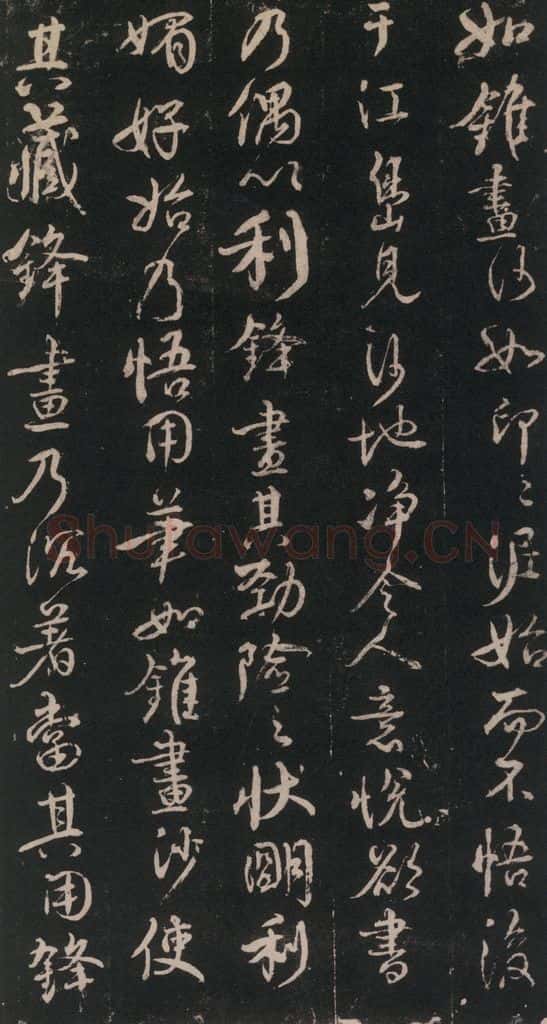 如錐畫沙如印印泥始而不悟後
于江島見沙地淨令人意悅欲書
乃偶以利鋒畫其勁險之狀明利
媚好始乃悟用筆如錐畫沙使
其藏鋒畫乃沉著當其用鋒
Shufawang.CN